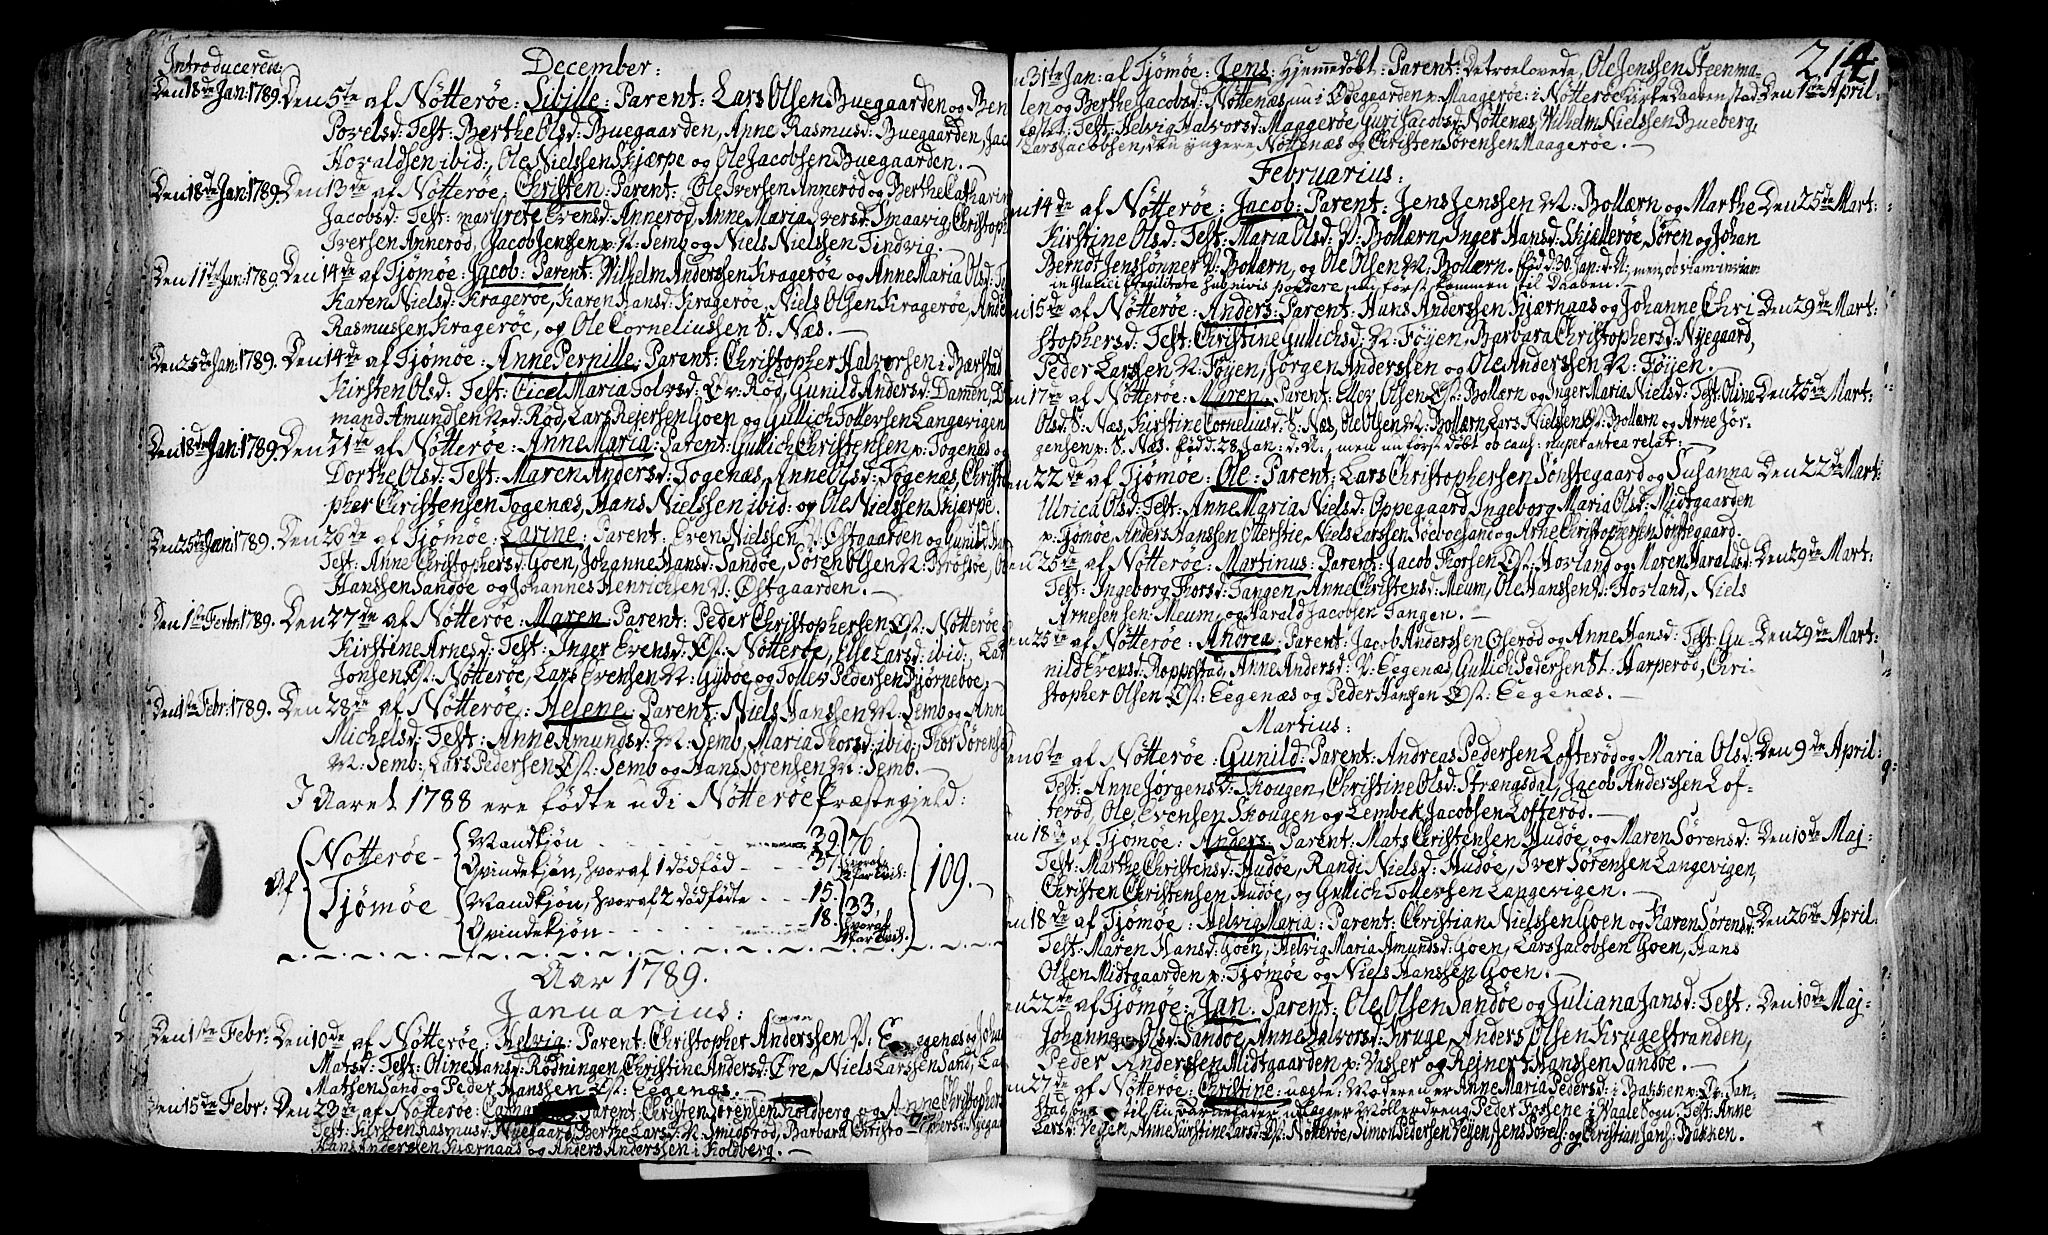 Introduceren:
December:
Den 18de Jan: 1789. Den 5te af Nötterøe: Sibille: Parent: Lars Olsen Buegaarden og Ben
Povelsd: Test: Berthe Olsd: Buegaarden, Anne Rasmusd: Buegaarden, Jac
Hovaldsen ibid:, Ole Nielssen Skjærpe og Ole Jacobsen Buegaarden. —
Den 18de Jan: 1789. Den 13de af Nötterøe: Christen: Parent: Ole Iversen Annerød og Berthe Catharin
Jacobsd: Test: Margrete Evensd: Annerød, Anne Maria Iversd: Smaavig, Christoph
Iversen Annerød, Jacob Jenssen v: N: Semb og Niels Nielssen Tindvig. —
Den 11te Jan: 1789. Den 14de af Tjömöe: Jacob: Parent: Wilhelm Anderssen Kragerøe og Anne Maria Olsd: T
Karen Nielsd: Kragerøe, Karen Hansd: Kragerøe, Niels Olsen Kragerøe, Ande
Rasmussen Kragerøe, og Ole Corneliussen S: Næs. —
Den 25de Jan: 1789. Den 14de af Tjömöe: Anne Pernille: Parent: Christopher Halvorsen i Bærstad
Kirsten Olsd: Test: Cicel Maria Tolvsd: Ø v: Rød, Gunild Andersd: Damen, D
mand Amundsen N: v: Rød, Lars Reiersen Goen og Gullich Tollefsen Langevigen
Den 18de Jan: 1789. Den 21de af Nötterøe: Anne Maria: Parent: Gullich Christensen v: Fogenæs og
Dorthe Olsd: Test: Maren Andersd: Fogenæs, Anne Olsd: Fogenæs, Christo
pher Christensen Fogenæs, Hans Nielssen ibid: og Ole Nielssen Skjærpe.
Den 25de Jan: 1789. Den 26de af Tjömöe: Larine: Parent: Even Nielssen N: Østgaarden og Gunild Han
Test: Anne Christophersd: Goen, Johanne Hansd: Sandøe, Søren Olsen N: Brøtsøe, O
Hanssen Sandøe og Johannes Henrichsen N: Østgaarden. —
Den 1ste Febr: 1789. Den 27de af Nötterøe: Maren: Parent: Peder Christophersen Øst: Nötterøe
Kirstine Arnesd: Test: Inger Evensd: Øst: Nötterøe, Else Larsd: ibid:, Lar
Jonsen Øst: Nötterøe, Lars Evensen N: Gyböe og Tollev Pedersen Bjørneboe. —
Den 1ste Febr: 1789. Den 28de af Nötterøe: Helene: Parent: Niels Hanssen N: Semb og Ann
Michelsd: Test: Anne Amundsd: N: Semb, Maria Thorsd: ibid:, Thor Sørense
N: Semb, Lars Pedersen Øst: Semb og Hans Sørensen N: Semb. —
I Aaret 1788 ere fødte udi Nötterøe Præstegjeld:
Af Nötterøe - Mandkjøn - - - 39 76
Qvindekjøn, hvoraf 1 dödföd - - - 37 hvoraf
Tjömöe Mandkjøn, hvoraf 2 dödfödte - - - 15. 109. —
Qvindekjøn - - - 18. 33, hvoraf
Aar 1789.
Januarius:
Den 1ste Febr: Den 10de af Nötterøe: Helvig: Parent: Christopher Anderssen N: Eegenæs og Joha
Matsd: Test: Oline Hansd: Rødningen, Christine Andersd: Øre, Niels Larssen Sand, Lar
Mathsen Sand og Peder Hanssen Øst: Eegenæs. —
Den 15de Febr: Den 23de af Nötterøe: Parent: Christen Sørensen Holdberg og Anne Christopher
Test: Kirsten Rasmusd: Nyegaard, Berthe Larsd: N: Smidsrød, Barbara Christophersd: Nyegaa
Hans Anderssen Kjærnaas og Anders Anderssen i Holdberg. —
214
n 31te Jan: af Tjömöe: Jens: Hjemmedöbt: Parent: De troelovede, Ole Jenssen Steenma- Den 1ste April:
len og Berthe Jacobsd: Nøttenæs, nu i Ødegaarden v: Maagerøe: i Nötterøe Kirke Daaben stad-
fæstet: Test: Helvig Halvorsd: Maagerøe, Guri Jacobsd: Nøttenæs, Wilhelm Nielssen Bueberg,
Lars Jacobsen, den yngere Nøttenæs og Christen Sørensen Maagerøe. —
Februarius:
n 14de af Nötterøe: Jacob: Parent: Jens Jenssen N: Bollærn og Marthe Den 25de Mart:
Kirstine Olsd: Test: Maria Olsd: N: Bollærn, Inger Hansd: Skjællerøe, Søren og Johan
Berndt Jenssønner N: Bollærn, og Ole Olsen N: Bollærn. född 30. Jan: d: A:, men ob viam in viam
in glaciei fragilitate sub nivis pondere nu först kommen til Daaben. —
n 15de af Nötterøe: Anders: Parent: Hans Anderssen Kjærnaas og Johanne Chri Den 29de Mart:
stophersd: Test: Christine Gullichsd: N: Føyen, Barbara Christophersd: Nyegaard,
Peder Larssen N: Føyen, Jørgen Anderssen og Ole Anderssen N: Føyen. —
n 17de af Nötterøe: Maren: Parent: Ellev Olsen Øst: Bollærn og Inger Maria Nielsd: Test: Oline Den 25de Mart:
Olsd: S: Næs, Kirstine Corneliusd: S: Næs, Ole Olsen N: Bollærn, Lars Nielssen Øst: Bollærn og Arne Jør-
gensen v: S: Næs. född 28. Jan: d: A:, men nu först döbt ob caus: nuper antea relat: —
n 22de af Tjömöe: Ole: Parent: Lars Christophersen Sønstegaard og Susanna Den 22de Mart:
Ulrica Olsd: Test: Anne Maria Nielsd: Oppegaard, Ingeborg Maria Olsd: Midtgaarden
v: Tjömöe, Anders Hanssen Otterstie, Niels Larssen Soeboesand og Arne Christophersen Sønstegaard.
n 25de af Nötterøe: Martinus: Parent: Jacob Thorsen Øst: Hovland og Maren Haraldsd: Den 29de Mart:
Test: Ingeborg Thorsd: Tangen, Anne Christensd: Meum, Ole Hanssen N: Hovland, Niels
Arnesen sen: Meum, og Harald Jacobsen Tangen. —
n 25de af Nötterøe: Andrea: Parent: Jacob Anderssen Oserød og Anne Hansd: Test: Gu- Den 29de Mart:
nild Evensd: Roppestad, Anne Andersd: N: Eegenæs, Gullich Pedersen St. Harperød, Chri-
stopher Olsen Øst: Eegenæs og Peder Hanssen Øst: Eegenæs. —
Martius:
n 6te af Nötterøe: Gunild: Parent: Andreas Pedersen Lofterød og Maria Olsd: Den 9de April:
Test: Anne Jørgensd: Skougen, Christine Olsd: Strængsdal, Jacob Anderssen Lof-
terød, Ole Evensen Skougen og Lembek Jacobsen Lofterød. —
n 18de af Tjömöe: Anders: Parent: Mats Christensen Hudøe, og Maren Sørensd: Den 10de Maj:
Test: Marthe Christensd: Hudøe, Randi Nielsd: Hudøe, Iver Sørensen Langevigen,
Christen Christensen Hudøe, og Gullich Tollefsen Langevigen. —
n 18de af Tjömöe: Helvig Maria: Parent: Christian Nielssen Goen og Karen Sørensd: Den 26de April:
Test: Maren Hansd: Goen, Helvig Maria Amundsd: Goen, Lars Jacobsen Goen, Hans
Olsen Midtgaarden v: Tjömöe og Niels Hanssen Goen. —
n 22de af Tjömöe: Jan: Parent: Ole Olsen Sandøe og Juliana Jansd: Test: Den 10de Maj:
Johanne Olsd: Sandøe, Anne Halvorsd: Kruge, Anders Olsen Krugestranden,
Peder Anderssen Midtgaarden v: Vasser og Reinert Hanssen Sandøe. —
n 27de af Nötterøe: Christine: uegte: Moderen er Anne Maria Pedersd: i Bakken v: Ø: Jan-
stad, som til sin Barnefader udlægger Møllerdreng Peder Fossene i Vaale Sogn: Test: Anne
Larsd: Veyen, Anne Kirstine Larsd: Øst: Nötterøe, Simon Pedersen Veyen, Jens Povels: og Christian Jans: Bakken.